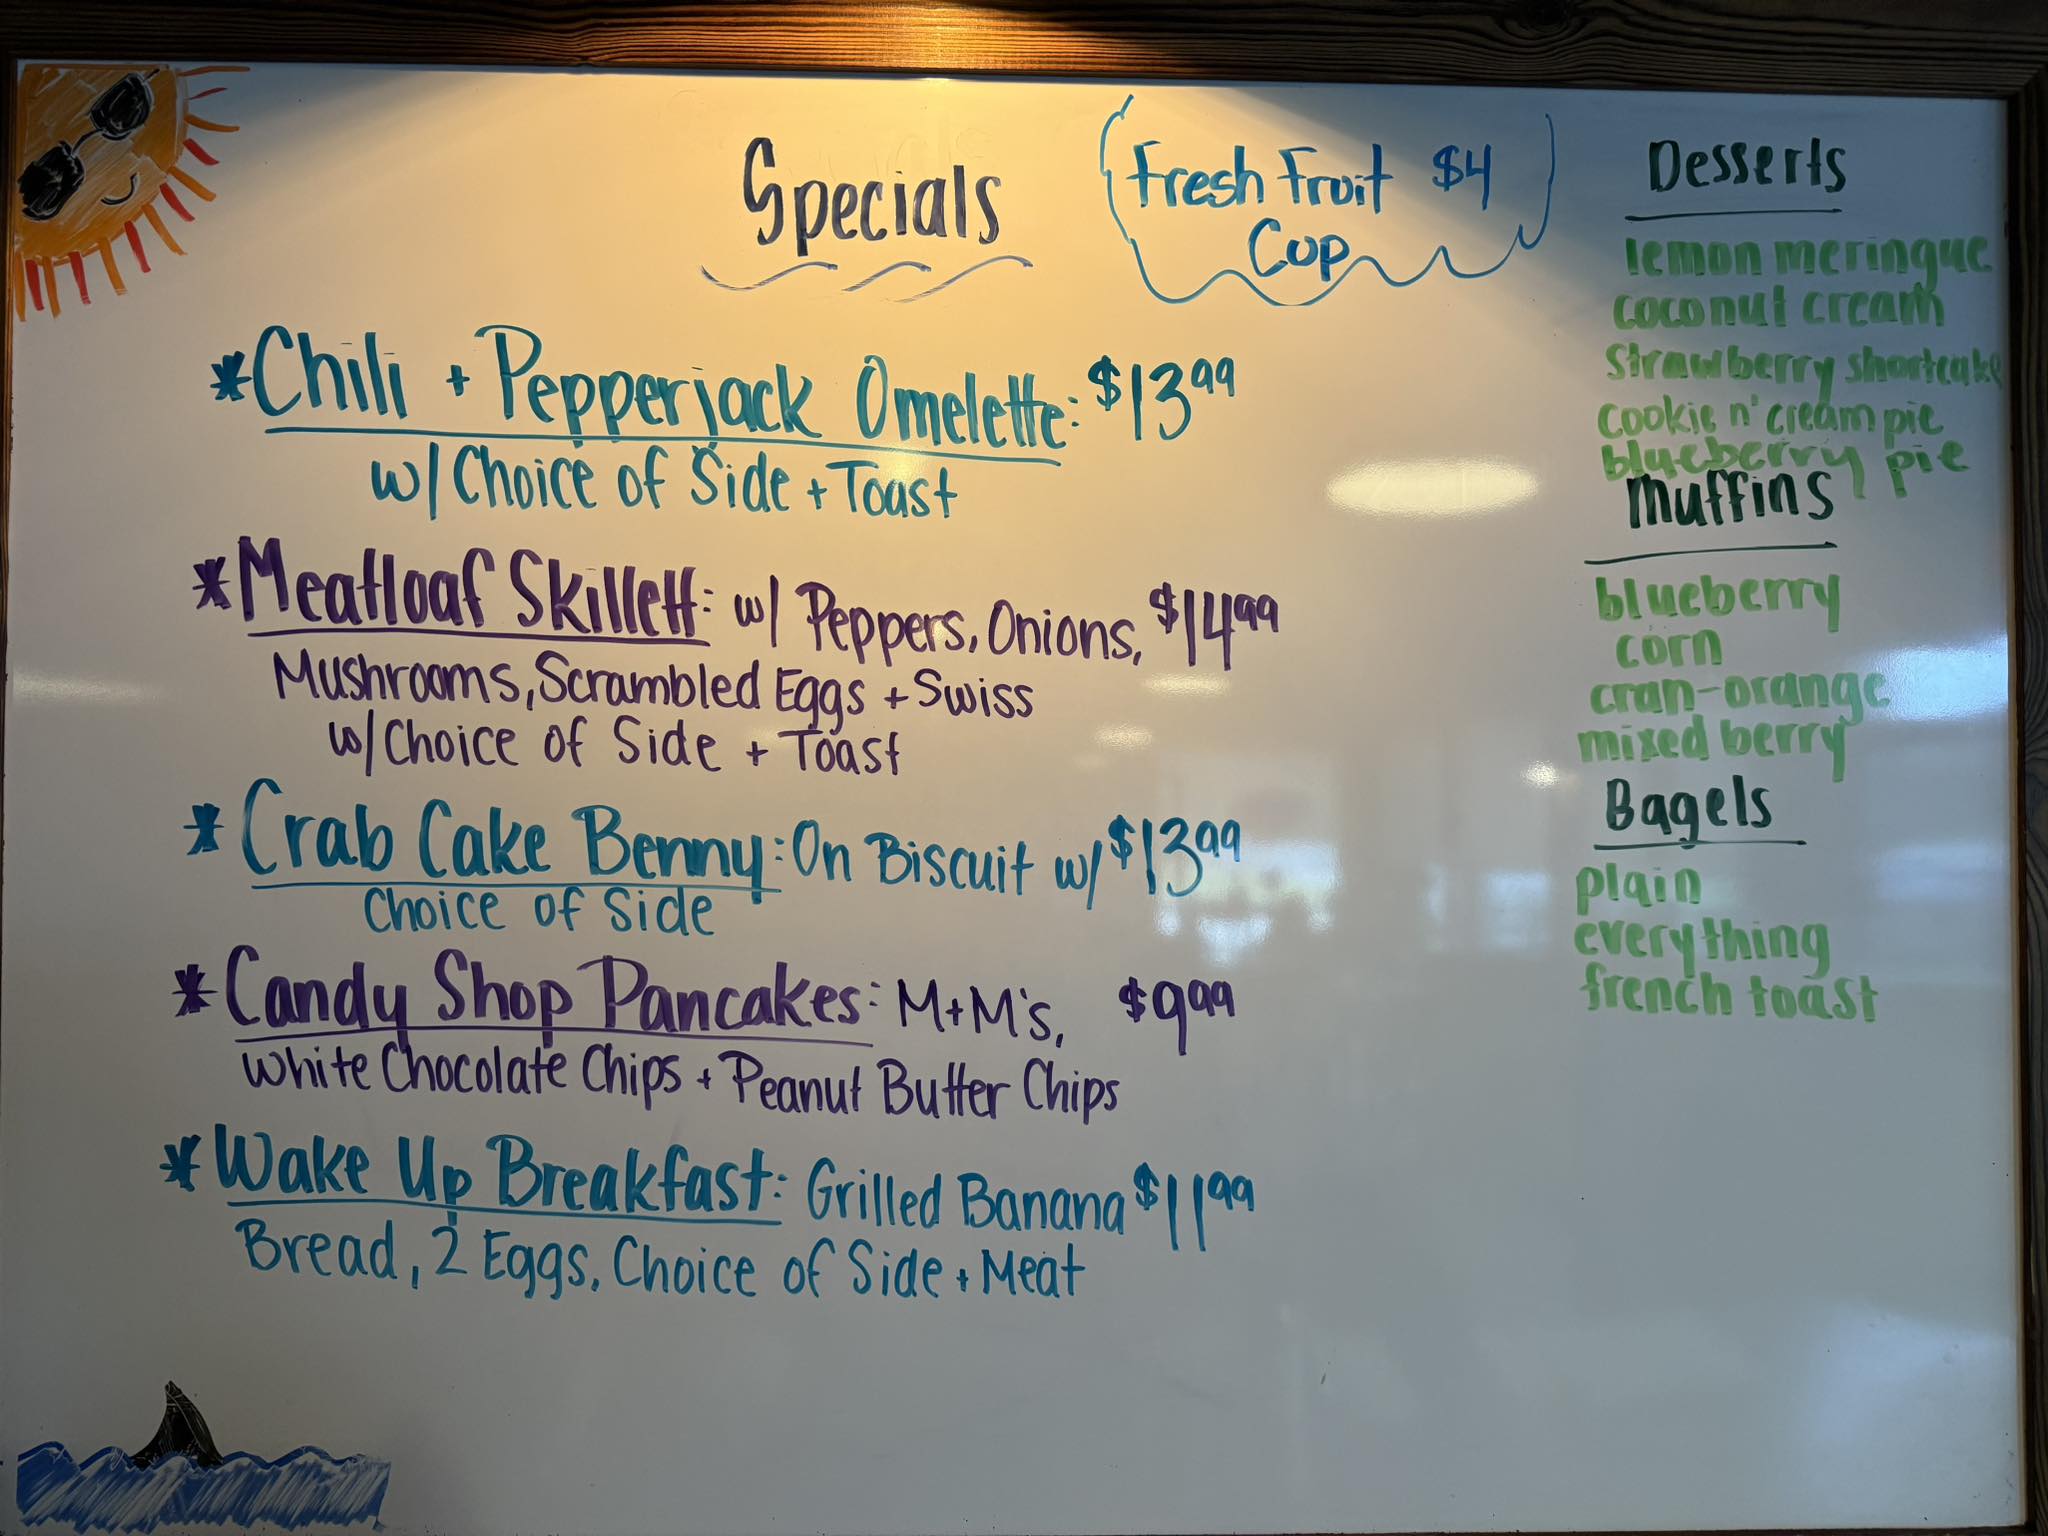 Specials
Fresh Fruit $4
Cup
*Chili + Pepperjack Omelette: $13.99
w/ Choice of Side + Toast
*Meatloaf Skillett: w/ Peppers, Onions, $14.99
Mushrooms, Scrambled Eggs + Swiss
w/ Choice of Side + Toast
*Crab Cake Benny: On Biscuit w/ $13.99
Choice of Side
*Candy Shop Pancakes: M+M's, $9.99
White Chocolate Chips + Peanut Butter Chips
*Wake Up Breakfast: Grilled Banana $11.99
Bread, 2 Eggs, Choice of Side + Meat
Desserts
lemon meringue
coconut cream
strawberry shortcake
cookie n' cream pie
blueberry pie
Muffins
blueberry
corn
cran-orange
mixed berry
Bagels
plain
everything
french toast